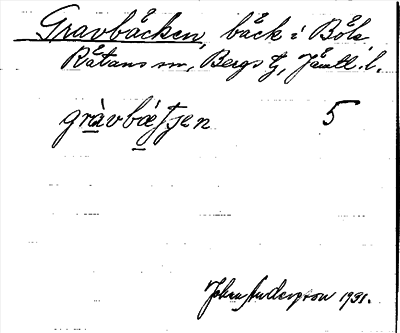 Gravbäcken, bäck i Böle,
Råtans sn, Bergs tg, Jämtl. l.
gràvbæ̀ʃʃen 5
Johan Anderson 1931.